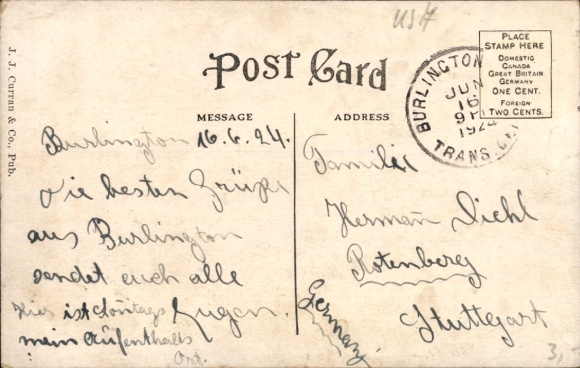 USA
J. J. Curran & Co., Pub.
Post Card
PLACE
STAMP HERE
DOMESTIC
CANADA
GREAT BRITAIN
GERMANY
ONE CENT.
FOREIGN
TWO CENTS.
BURLINGTON
JUN
16
9 P
1924
TRANS.
MESSAGE
ADDRESS
Burlington 16.6.24.
Die besten Grüße
aus Burlington
sendet euch alle
Eugen.
Hier ist Sontags
mein Aufenthalts
Ort.
Familie
Herman Diehl
Rotenberg
Stuttgart
Germany
3,-